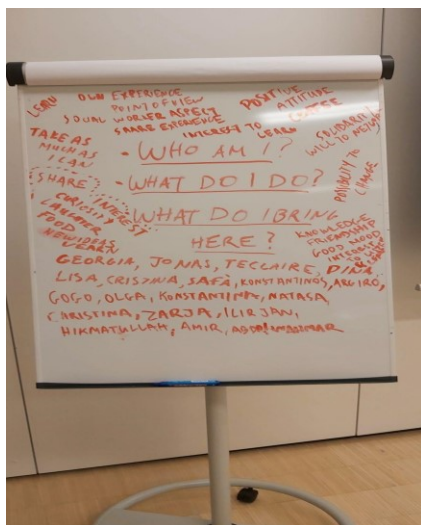 LEARN
OWN EXPERIENCE
POINT OF VIEW
SOUAL WORKER ASPECT
SHARE EXPERIENCE
INTEREST TO LEARN
POSITIVE
ATTITUDE
COFFEE
SOLIDARITY
WILL TO NETWORK
POSIBILITY TO
CHANGE
TAKE AS
MUCH AS
I CAN
SHARE
CURIOSITY
INTEREST
LAUGHTER
FOOD
NEW IDEAS
LEARN
- WHO AM I?
- WHAT DO I DO?
WHAT DO I BRING
HERE?
KNOWLEDGE
FRIENDSHIP
GOOD MOOD
INTEREST
TO
GEORGIA, JONAS, TECLAIRE, DINA
LISA, CRISTINA, SAFA, KONSTANTINOS, ARGIRO,
GOGO, OLGA, KONSTANTINA, NATASA,
CHRISTINA, ZARJA, ILIRJAN,
HIKMATULLAH, AMIR,